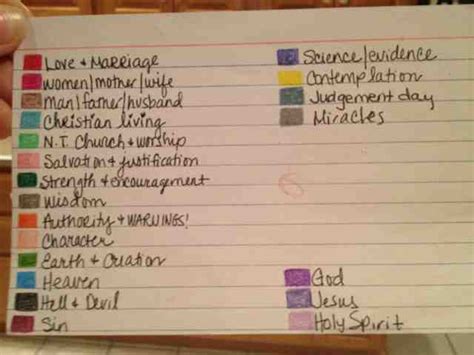 Love & Marriage
Women/mother/wife
Man/father/husband
Christian living
N.T. Church & worship
Salvation & justification
Strength & encouragement
Wisdom
Authority & WARNINGS!
Character
Earth & Creation
Heaven
Hell & Devil
Sin
Science/evidence
Contemplation
Judgement day
Miracles
God
Jesus
Holy Spirit